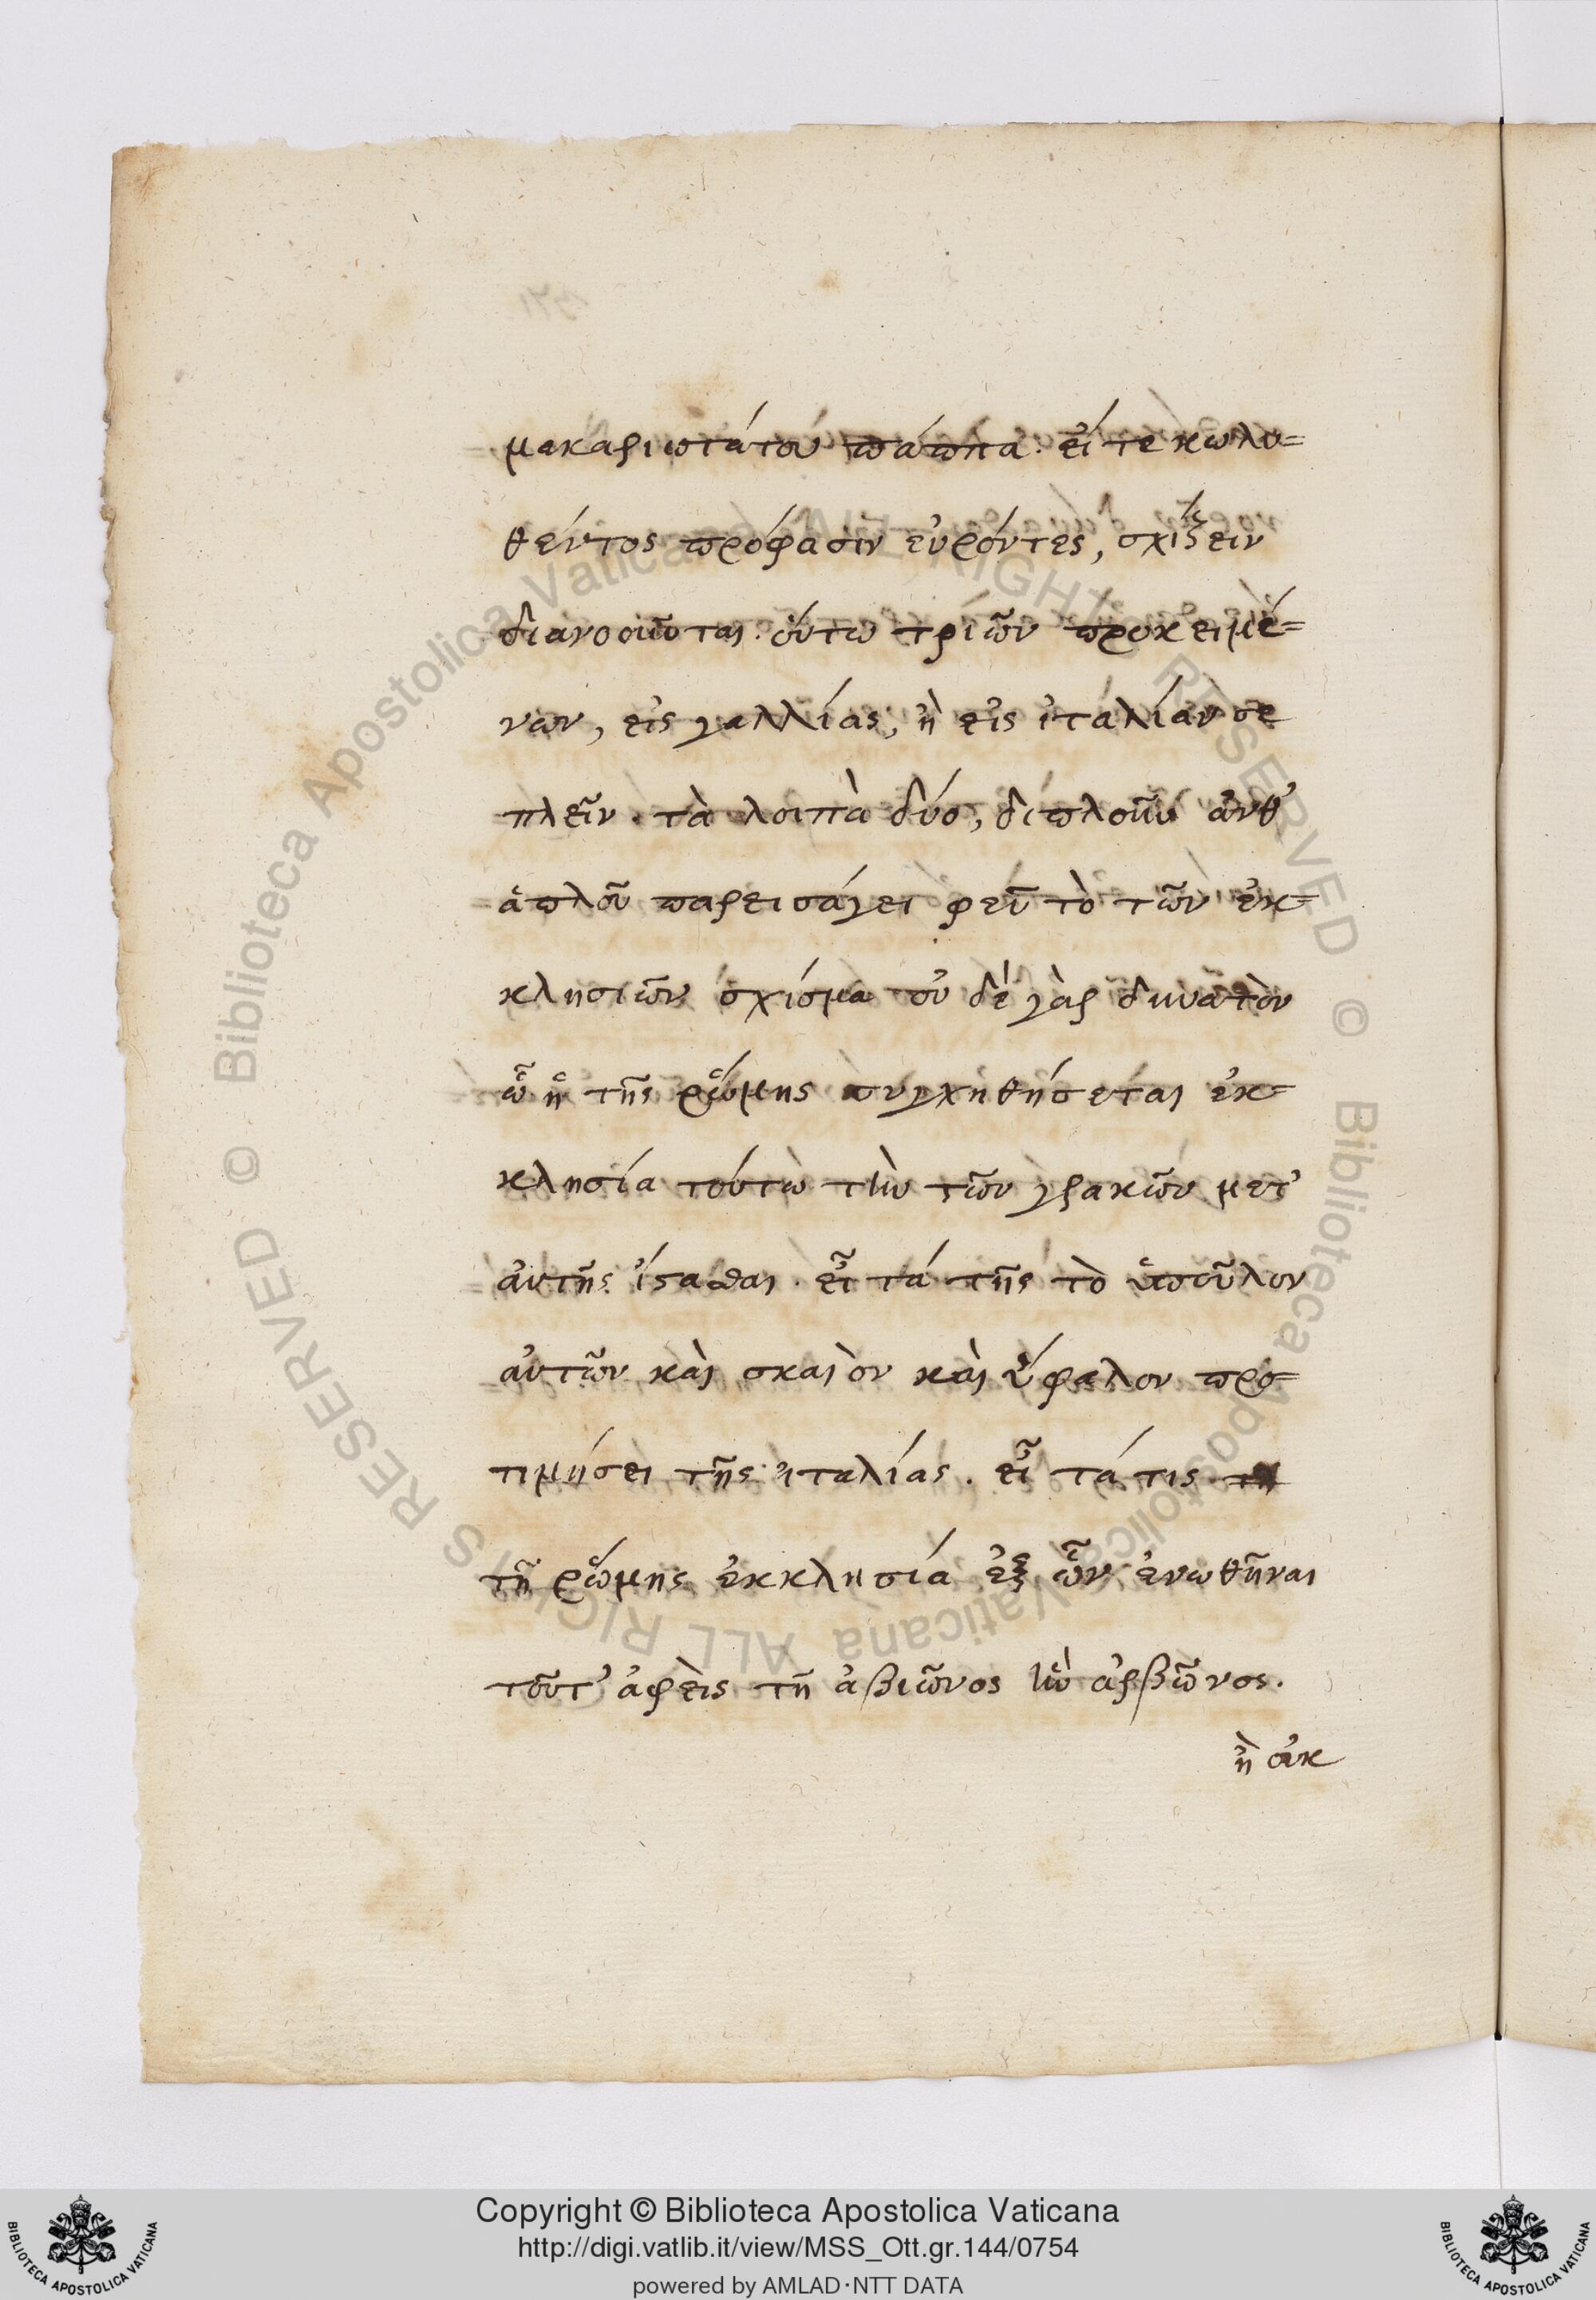 μακαριωτάτου πάππα. εἴ τε κωλυ=
θέντος πρόφασιν εὑρόντες, σχίζειν
διανοοῦνται. οὕτω τριῶν προκειμέ=
νων, εἰς γαλλίας, ἢ εἰς ἰταλίαν σε
πλεῖν. τὰ λοιπὰ δύο, διπλοῦν ἀνθ'
ἁπλοῦ παρεισάγει φεῦ τὸ τῶν ἐκ=
κλησιῶν σχίσμα οὐ δὲ γὰρ δυνατὸν
ᾧ ἡ τῆς ῥώμης συγχηθήσεται ἐκ=
κλησία τούτω τὴν τῶν γρακῶν μετ'
αὐτῆς ἵστασθαι. εἶ τά της τὸ ὕπουλον
αὐτῶν καὶ σκαιὸν καὶ ὕφαλον προ=
τιμήσει τῆς ἰταλίας. εἶ τά τις
τῆ ῥώμης ἐκκλησία ἐξ ὧν ἑνωθῆναι
τοῦτ' ἀφεὶς τῆ ἀβιῶνος ἢ ἀρβῶνος.
ἢ οὐκ
Copyright © Biblioteca Apostolica Vaticana
http://digi.vatlib.it/view/MSS_Ott.gr.144/0754
powered by AMLAD·NTT DATA